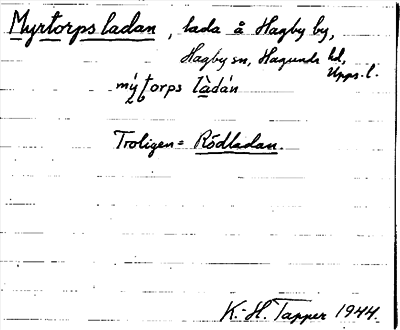 Myrtorps ladan, lada å Hagby by,
Hagby sn, Hagunda hd,
Upps. l.
mý torps làdán
Troligen = Rödladan.
K.-H. Tapper 1944.